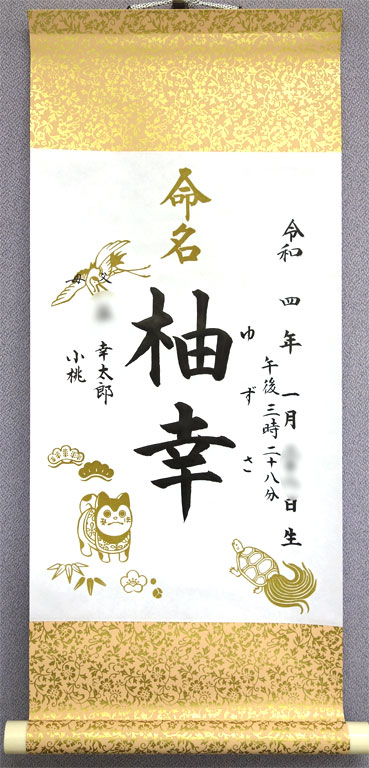 命名
令和四年一月 日生
午後三時二十八分
ゆずさ
柚幸
父 幸太郎
母 小桃